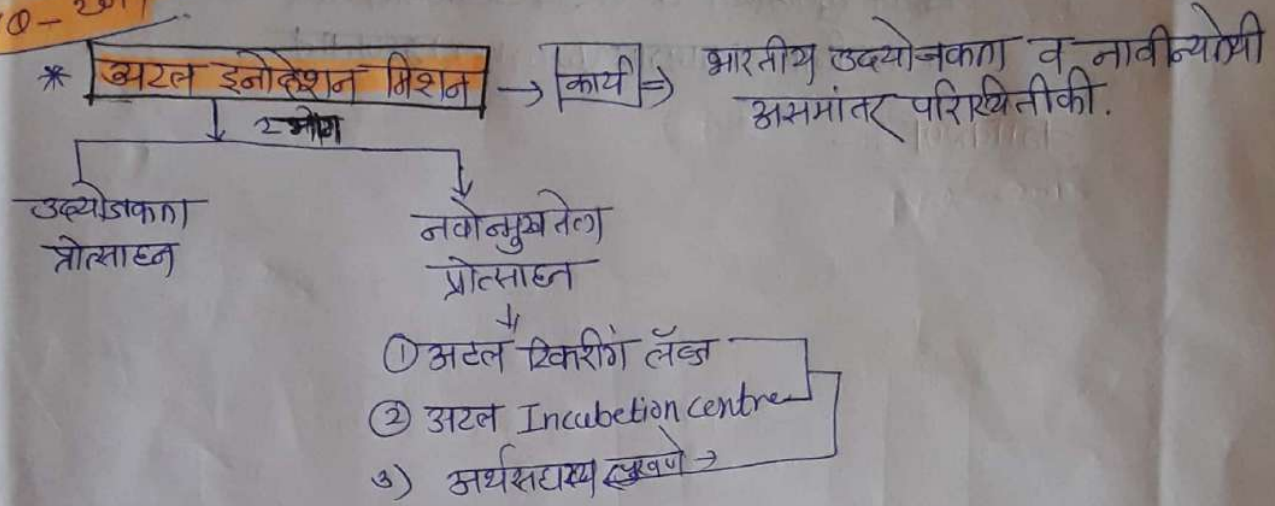 * अटल इनोव्हेशन मिशन → कार्य ⇒ भारतीय उदयोजकता व नावीन्यतेची
असमांतर परिस्थितीकी.
↓ 2 भाग
उदयोजकता
प्रोत्साहन
नवोन्मुखतेला
प्रोत्साहन
① अटल टिंकरींग लॅब्ज
② अटल Incubetion centre
3) अर्थसहाय्य पुरवणे →